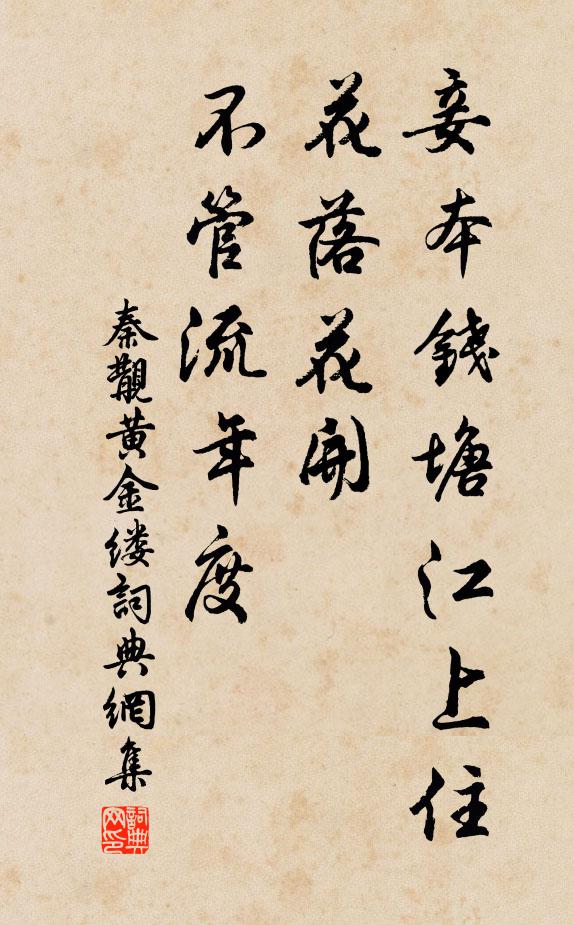 妾本錢塘江上住
花落花開
不管流年度
秦觀黄金缕詞典網集
詞典网印